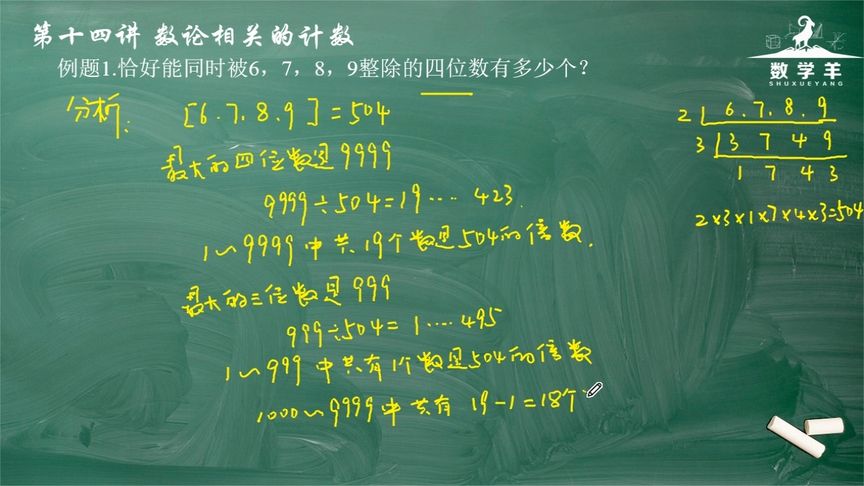 第十四讲 数论相关的计数
例题1.恰好能同时被6，7，8，9整除的四位数有多少个？
数学羊
SHUXUEYANG
分析:
[6.7.8.9]=504
最大的四位数是9999
9999÷504=19……423.
1～9999中共19个数是504的倍数.
最大的三位数是999
999÷504=1……495
1～999中共有1个数是504的倍数
1000～9999中共有 19-1=18个
2 6.7.8.9
3 3 7 4 9
1 7 4 3
2×3×1×7×4×3=504